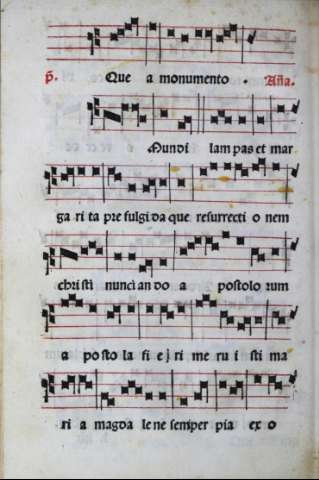 p̃. Que a monumento . Aña.
Mundi lam pas et mar
ga ri ta pre fulgi da que resurrecti o nem
christi nunci an do a postolo rum
a po sto la fi e ri me ru i sti ma
ri a magda le ne semper pia ex o